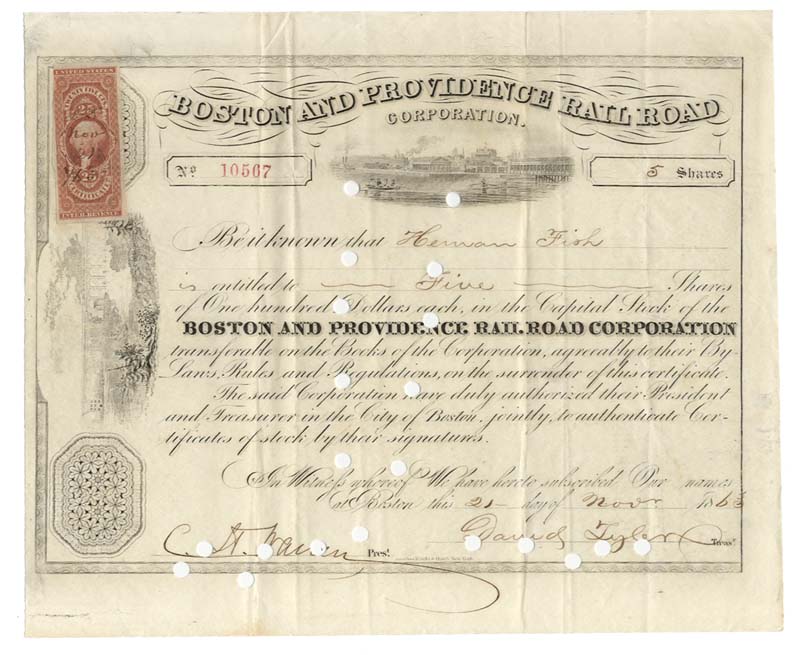 UNITED STATES
25
CERTIFICATE
INTER. REVENUE
BOSTON AND PROVIDENCE RAIL ROAD
CORPORATION.
No. 10567
5 Shares
Be it known that Heman Fish
is entitled to Five Shares
of One hundred Dollars each, in the Capital Stock of the
BOSTON AND PROVIDENCE RAIL ROAD CORPORATION
transferable on the Books of the Corporation, agreeably to their By-
Laws, Rules and Regulations, on the surrender of this certificate.
The said Corporation have duly authorized their President
and Treasurer in the City of Boston, jointly, to authenticate Cer-
tificates of stock by their signatures.
In Witness whereof We have hereto subscribed Our names
at Boston this 21 day of Novr 186
C. H. Warren Prest.
David Tyler Treasr.